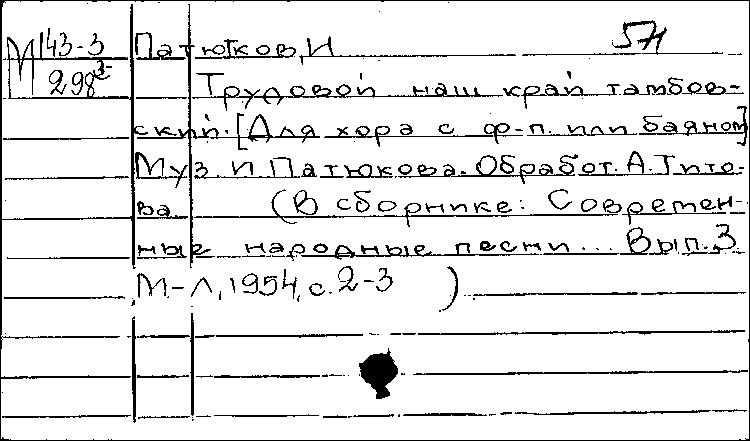 М 143-3 Патюков, И 571
298 3- Трудовой наш край тамбов-
ский. [Для хора с ф-п. или баяном]
Муз. И. Патюкова. Обработ. А. Тито-
ва (В сборнике: Современ-
ные народные песни... Вып. 3.
М.-Л, 1954, с. 2-3 )